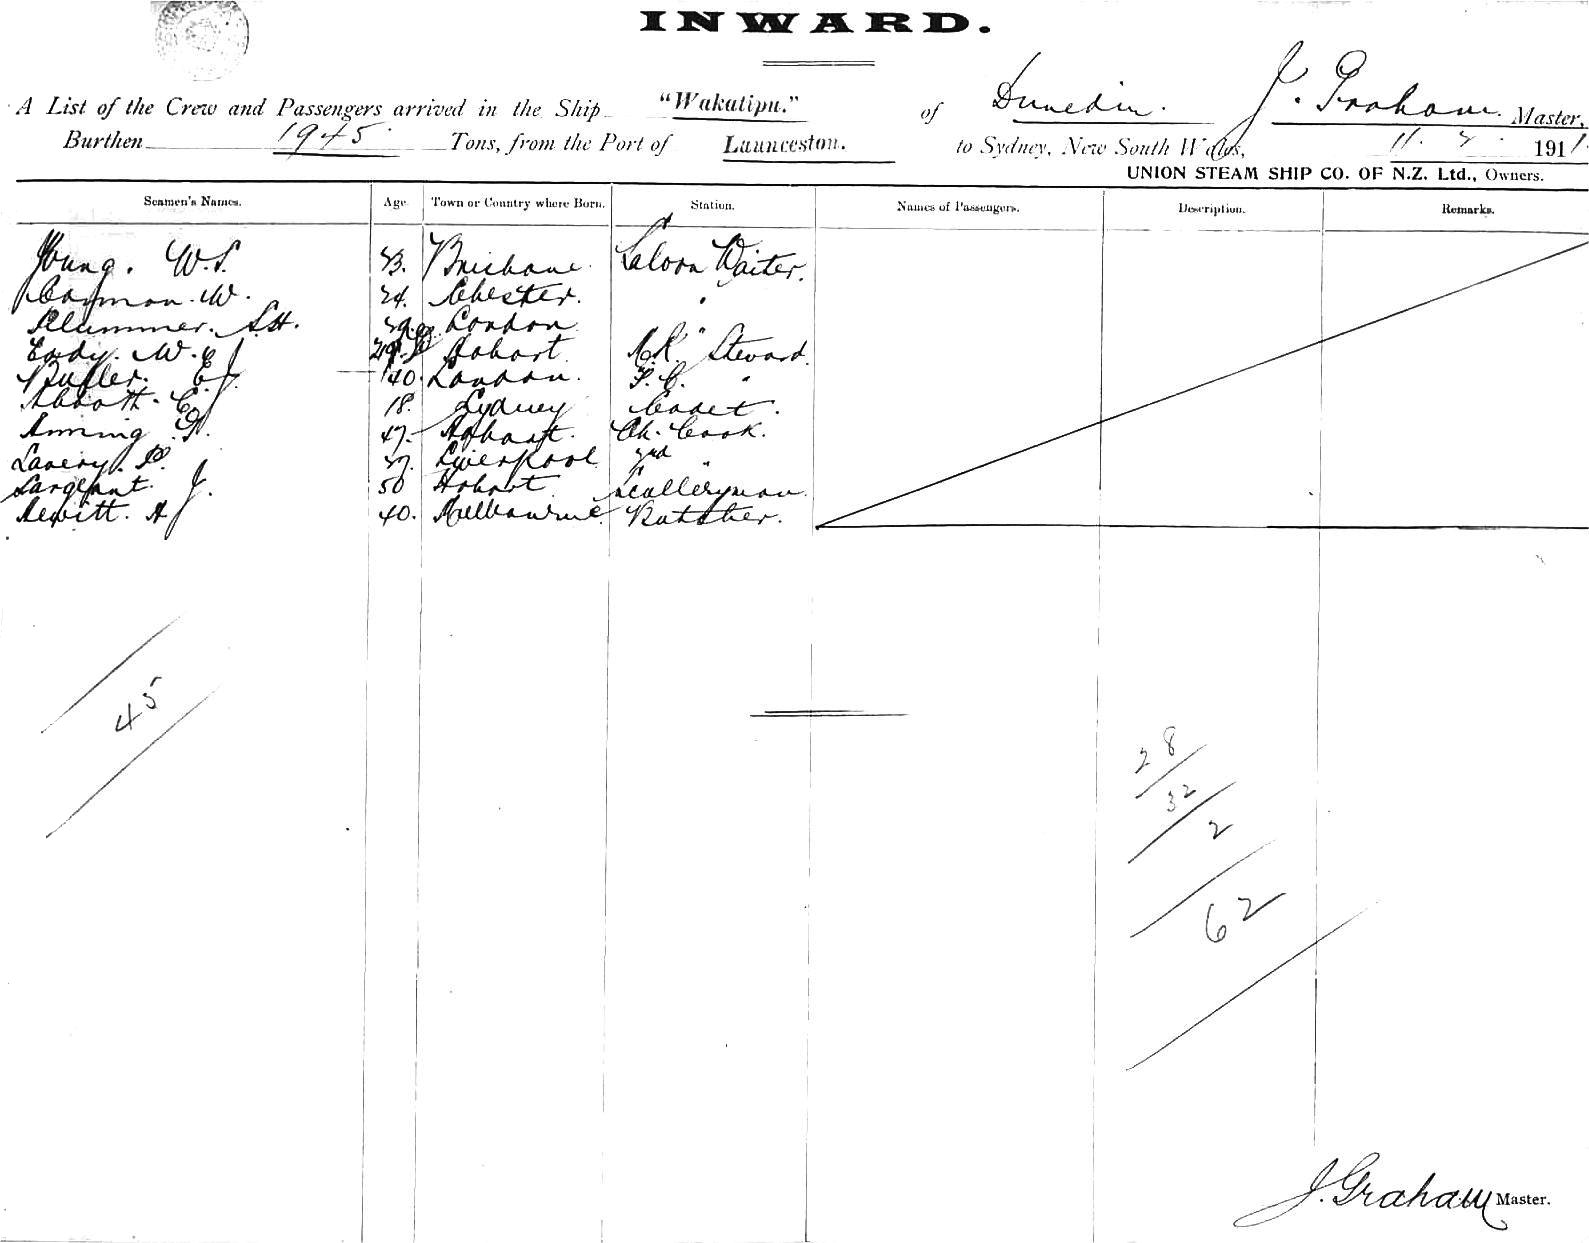 INWARD.
A List of the Crew and Passengers arrived in the Ship "Wakatipu." of Dunedin. J. Graham Master,
Burthen 1945 Tons, from the Port of Launceston. to Sydney, New South Wales, 11. 2. 1911.
UNION STEAM SHIP CO. OF N.Z. Ltd., Owners.
Seamen's Names. Age. Town or Country where Born. Station. Names of Passengers. Description. Remarks.
Young. W.S. 23. Brisbane. Saloon Waiter.
W. 24. Chester. "
Plummer. S.H. 29. London "
Eady. W. E J. 29. Hobart. Steward
Butler. E. J. 40. London. F.C. "
Abbott. E J 18. Sydney Cadet.
Anning 47. Hobart. Ch. Cook.
Lavery. 37. Liverpool 2nd "
Sargeant. J. 50 Hobart Sculleryman.
Hewitt. A J 40. Melbourne Butcher.
45
28
32
2
62
J. Graham Master.